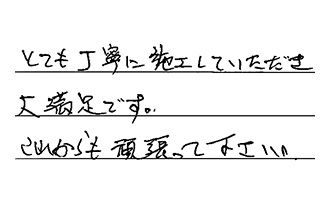 とても丁寧に施工していただき
大満足です。
これからも頑張って下さい。